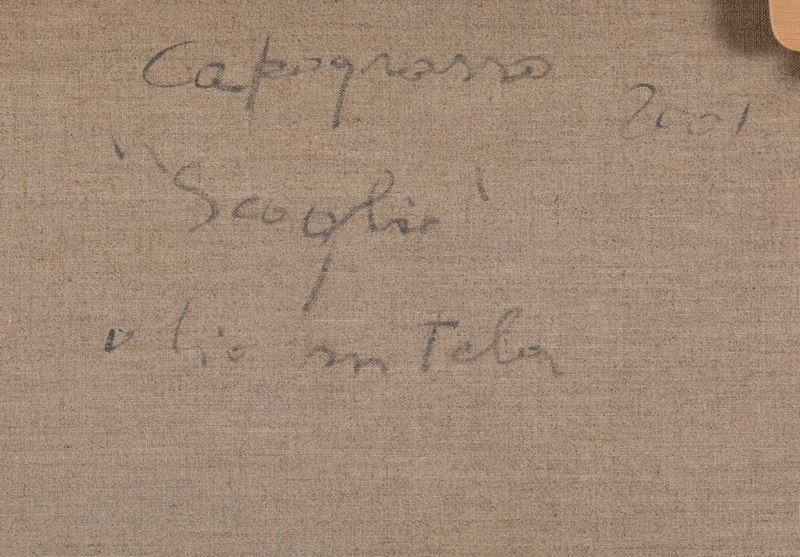 Capogrosso
2001
"Scoglio"
olio su tela